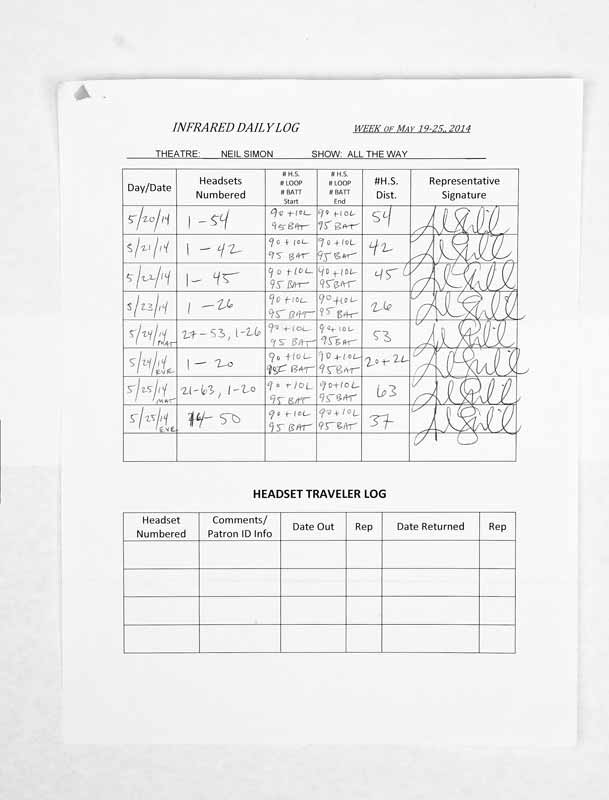 INFRARED DAILY LOG WEEK OF MAY 19-25, 2014
THEATRE: NEIL SIMON SHOW: ALL THE WAY
Day/Date Headsets Numbered # H.S. # LOOP # BATT Start # H.S. # LOOP # BATT End #H.S. Dist. Representative Signature
5/20/14 1-54 90+10L 95 BAT 90+10L 95 BAT 54
5/21/14 1-42 90+10L 95 BAT 90+10L 95 BAT 42
5/22/14 1-45 90+10L 95 BAT 90+10L 95 BAT 45
5/23/14 1-26 90+10L 95 BAT 90+10L 95 BAT 26
5/24/14 MAT 27-53, 1-26 90+10L 95 BAT 90+10L 95 BAT 53
5/24/14 EVE 1-20 90+10L 95 BAT 90+10L 95 BAT 20+2L
5/25/14 MAT 21-63, 1-20 90+10L 95 BAT 90+10L 95 BAT 63
5/25/14 EVE - 50 90+10L 95 BAT 90+10L 95 BAT 37
HEADSET TRAVELER LOG
Headset Numbered Comments/ Patron ID Info Date Out Rep Date Returned Rep